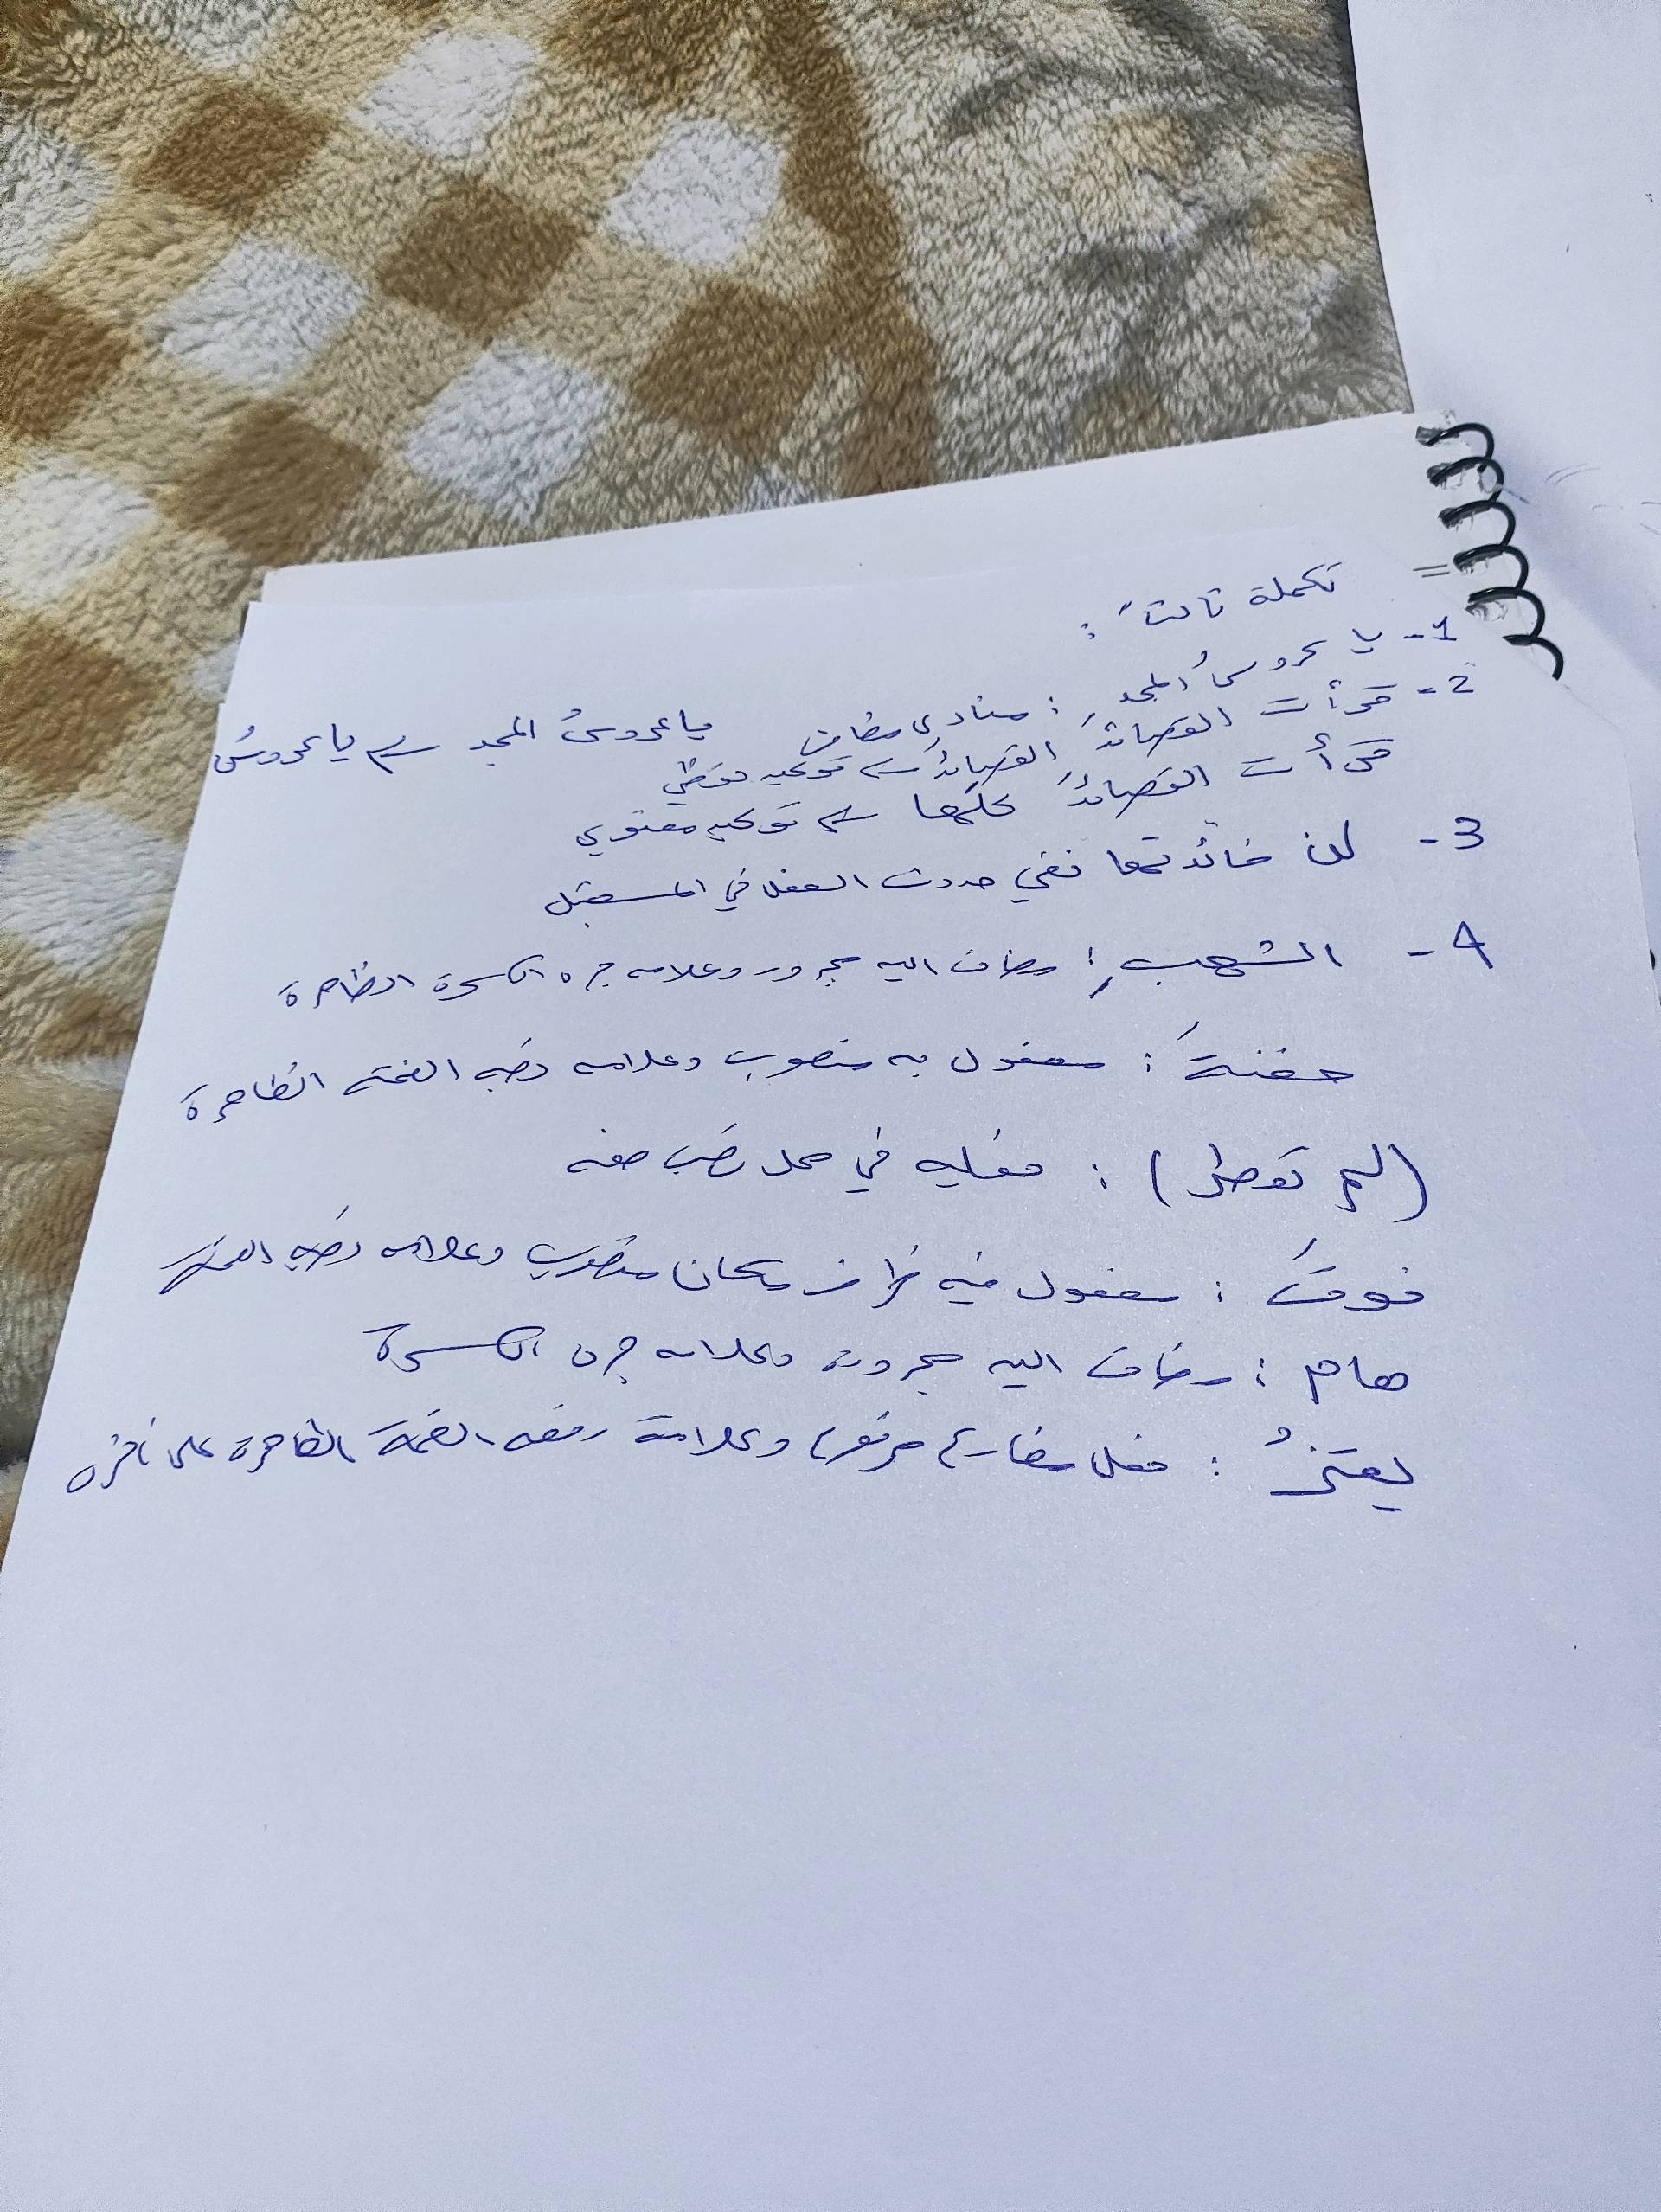 تكملة ثالثاً :
1- يا عروسُ المجد : منادى مضاف يا عروسُ المجد يا عروسُ
2- قرأت القصائدَ القصائدَ توكيد لفظي
قرأت القصائدَ كلَّها توكيد معنوي
3- لن فائدتها نفي حدوث الفعل في المستقبل
4- الشهبِ : مضاف اليه مجرور وعلامه جره الكسرة الظاهرة
حفنةً : مفعول به منصوب وعلامه نصبه الفتحة الظاهرة
(لم توطر) : فعليه في محل نصب صفه
فوقَ : مفعول فيه ظرف مكان منصوب وعلامه نصبه الفتحة
هام : مضاف اليه مجرور وعلامه جره الكسرة
يعتزُّ : فعل مضارع مرفوع وعلامة رفعه الضمة الظاهرة على اخره